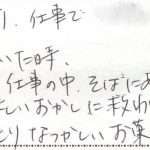 り. 仕事で
いた時、
仕事の中、そばにあ
しいおかしに救わ
とりなつかしいお菓